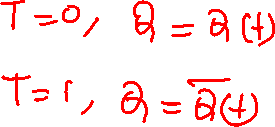 T=0, Q = Q(t)
T=1, Q = Q̅(t)